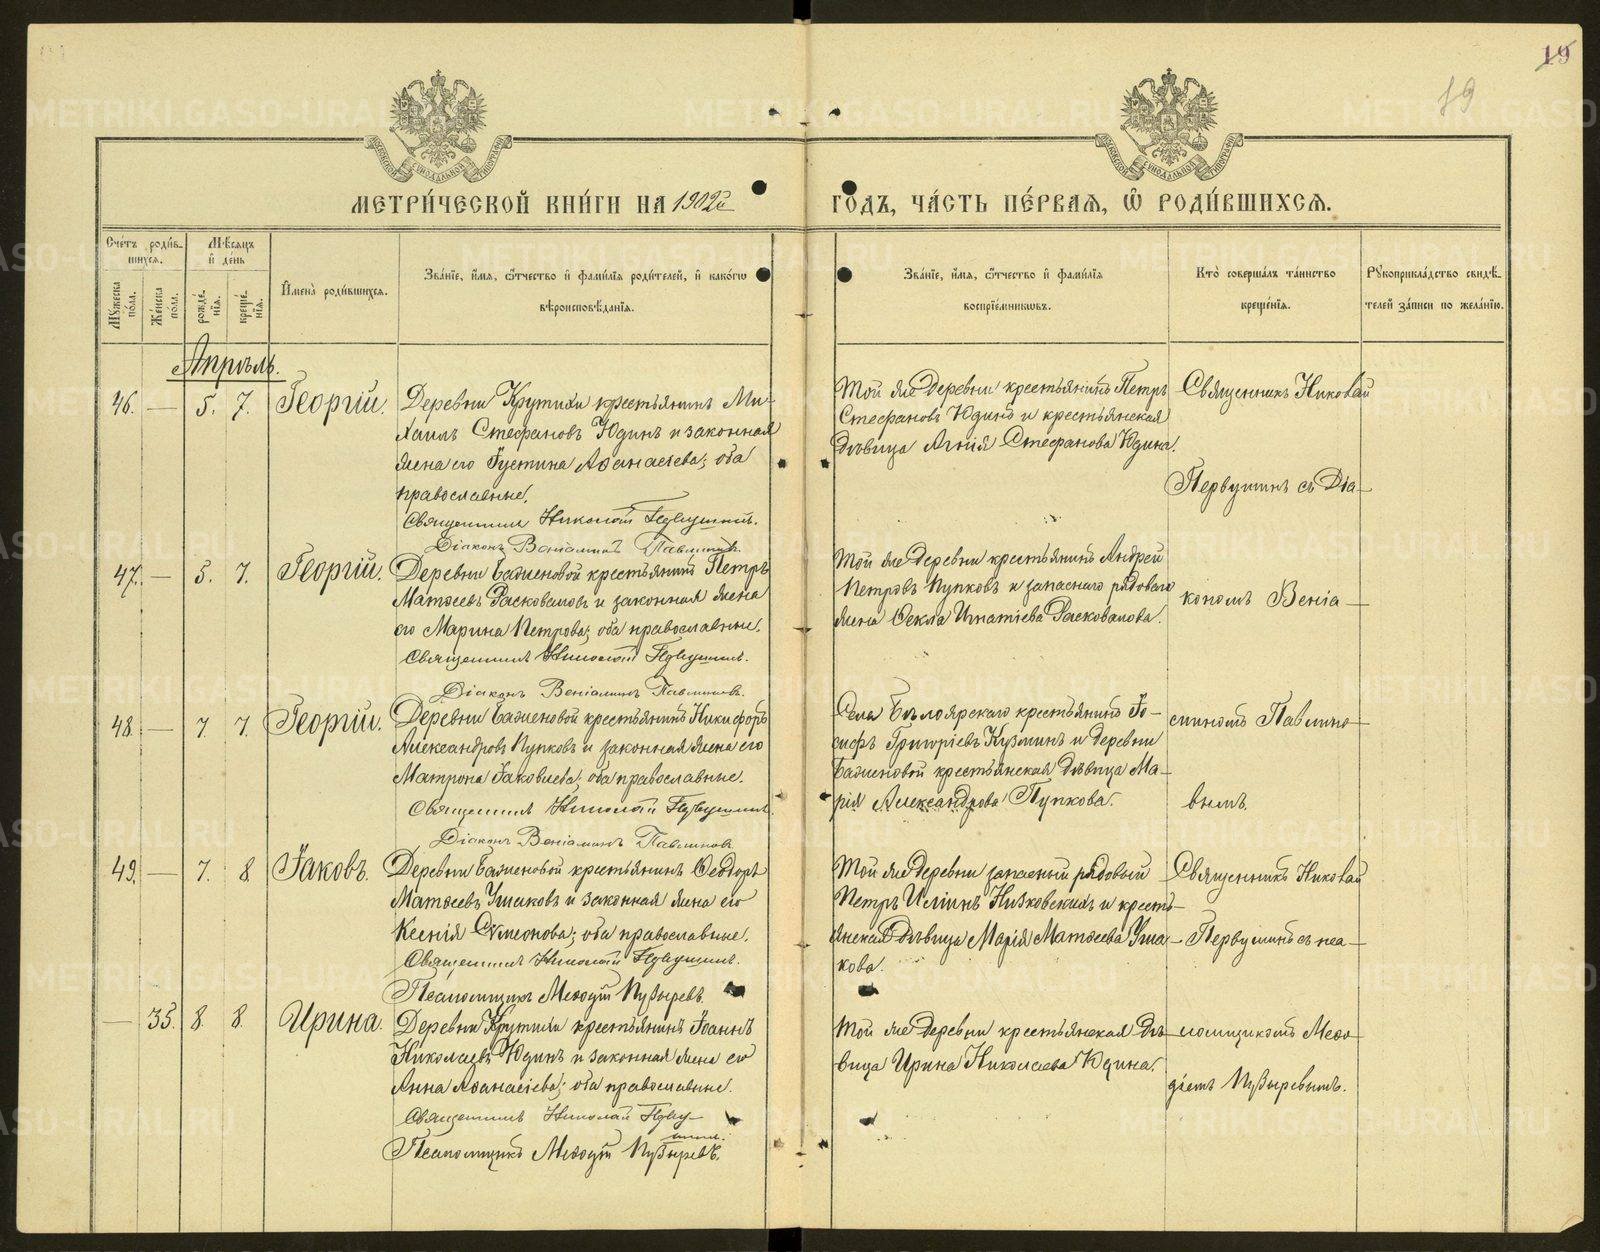 19
19
МЕТРИ́ЧЕСКОЙ КНИ́ГИ НА 1902й
ГОДЪ, ЧА́СТЬ ПЕ́РВАѦ, Ѿ РОДИ́ВШИХСѦ.
Сче́тъ роди́в-
шихся.
Мѣсяцъ
и де́нь
Мꙋжеска по́ла.
Же́нска по́ла.
рожде́-
нїя.
креще́-
нїя.
И҆мена̀ роди́вшихся.
Зва́нїе, и҆́мя, ѻ҆́тчество и҆ фами́лїя роди́телей, и҆ како́гѡ
вѣроисповѣ́данїя.
Зва́нїе, и҆́мя, ѻ҆́тчество и҆ фами́лїя
воспрїе́мникѡвъ.
Кто̀ соверша́лъ та́инство
креще́нїя.
Рꙋкоприкла́дство свидѣ́-
телей за́писи по жела́нїю.
Апрѣль.
46. — 5. 7. Георгій.
Деревни Крутихи крестьянинъ Ми-
хаилъ Стефановъ Юдинъ и законная
жена его Іустина Аѳанасіева; оба
православные.
Священникъ Николай Первушинъ.
Діаконъ Веніаминъ Павлиновъ.
Той же деревни крестьянинъ Петръ
Стефановъ Юдинъ и крестьянская
дѣвица Агнія Стефанова Юдина.
Священникъ Николай
Первушинъ съ Діа-
47. — 5. 7. Георгій.
Деревни Баженовой крестьянинъ Петръ
Матѳеевъ Расковаловъ и законная жена
его Марина Петрова; оба православные.
Священникъ Николай Первушинъ.
Діаконъ Веніаминъ Павлиновъ.
Той же деревни крестьянинъ Андрей
Петровъ Пупковъ и запаснаго рядоваго
жена Ѳекла Игнатіева Расковалова.
кономъ Веніа-
48. — 7. 7. Георгій.
Деревни Баженовой крестьянинъ Никифоръ
Александровъ Пупковъ и законная жена его
Матрона Іаковлева; оба православные.
Священникъ Николай Первушинъ.
Діаконъ Веніаминъ Павлиновъ
Села Бѣлоярскаго крестьянинъ Іо-
сифъ Григоріевъ Кузминъ и деревни
Баженовой крестьянская дѣвица Ма-
рія Александрова Пупкова.
миномъ Павлино-
вымъ.
49. — 7. 8 Іаковъ.
Деревни Баженовой крестьянинъ Ѳеодоръ
Матѳеевъ Ушаковъ и законная жена его
Ксенія Сѵмеонова; оба православные.
Священникъ Николай Первушинъ.
Псаломщикъ Меѳодій Пузыревъ.
Той же деревни запасный рядовый
Петръ Иліинъ Низковскихъ и кресть-
янская дѣвица Марія Матѳеева Уша-
кова.
Священникъ Николай
Первушинъ съ пса-
— 35. 8. 8. Ирина.
Деревни Крутихи крестьянинъ Іоаннъ
Николаевъ Юдинъ и законная жена его
Анна Аѳанасіева; оба православные.
Священникъ Николай Перву-
шинъ.
Псаломщикъ Меѳодій Пузыревъ.
Той же деревни крестьянская дѣ-
вица Ирина Николаева Юдина.
ломщикомъ Меѳо-
діемъ Пузыревымъ.